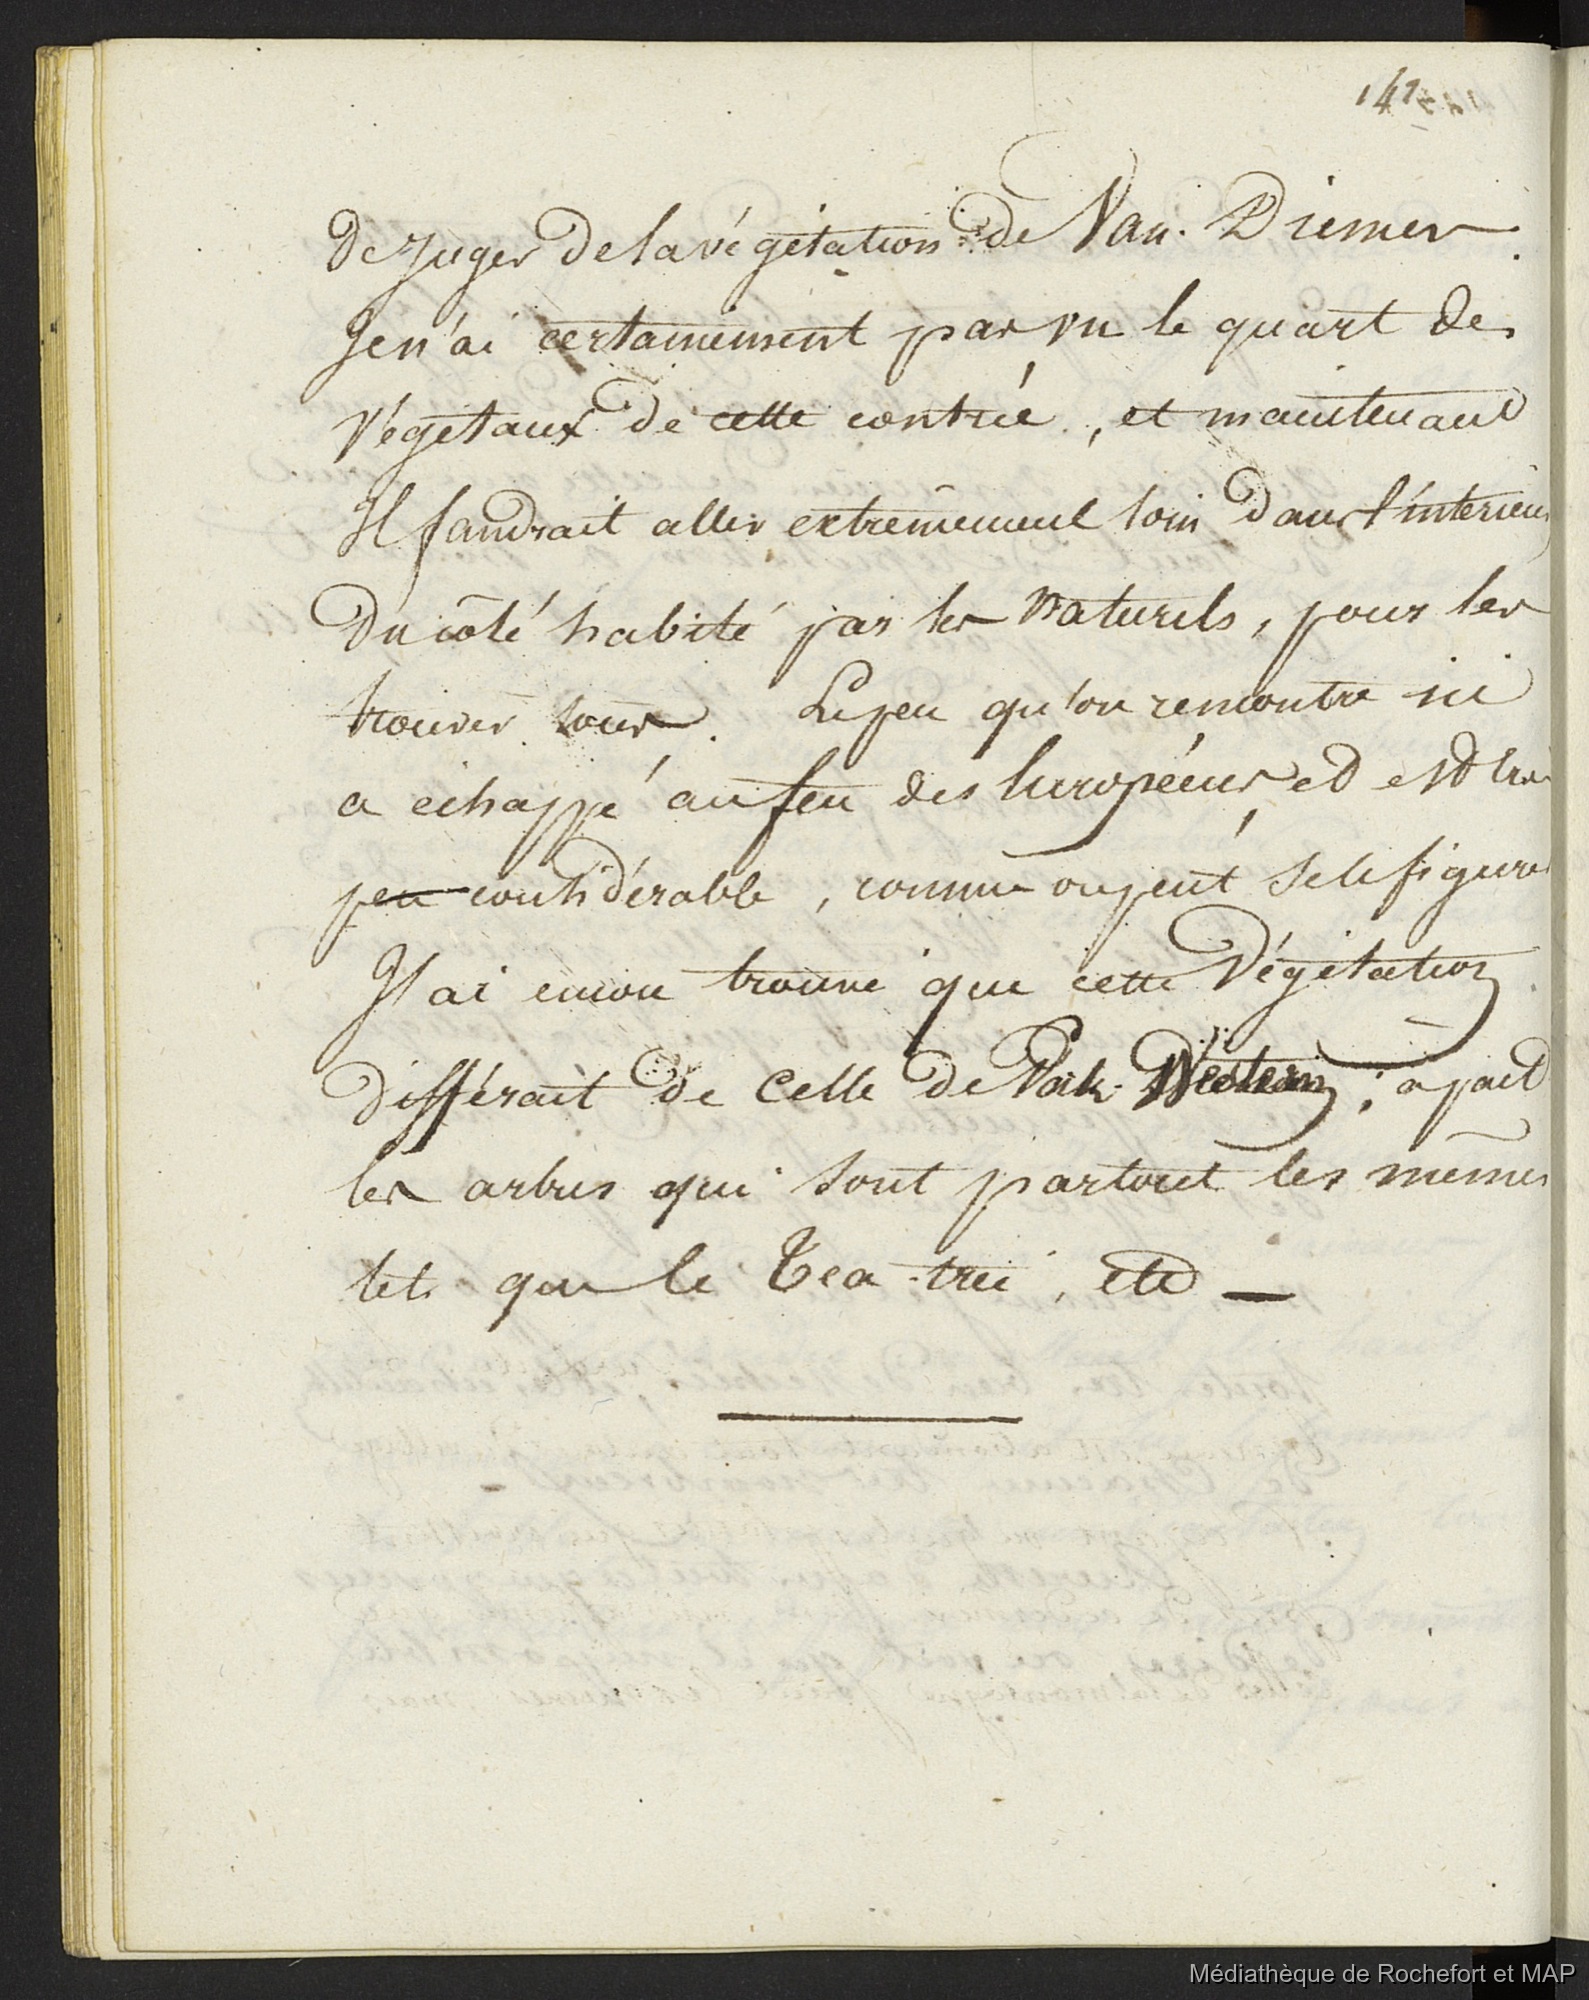 141
De juger de la végétation de Van. Diemen.
Je n'ai certainement pas vu le quart des
Végétaux de cette contrée, et maintenant
Il faudrait aller extrêmement loin dans l'intérieur
Du côté habité par les Naturels, pour les
trouver tous. Le peu qu'on rencontre ici
a échappé au feu des Européens, et est très
peu considérable, comme on peut se le figurer
J'ai encore trouvé que cette Végétation
Différait de celle de Port. Western; à part
les arbres qui sont partout les mêmes
tels que le Tea-tree, etc —
Médiathèque de Rochefort et MAP